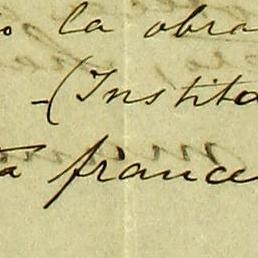 o la obra
-(Instit
a france